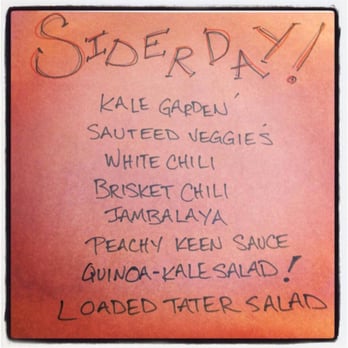 SIDERDAY!
KALE GARDEN'
SAUTEED VEGGIE'S
WHITE CHILI
BRISKET CHILI
JAMBALAYA
PEACHY KEEN SAUCE
QUINOA-KALE SALAD!
LOADED TATER SALAD